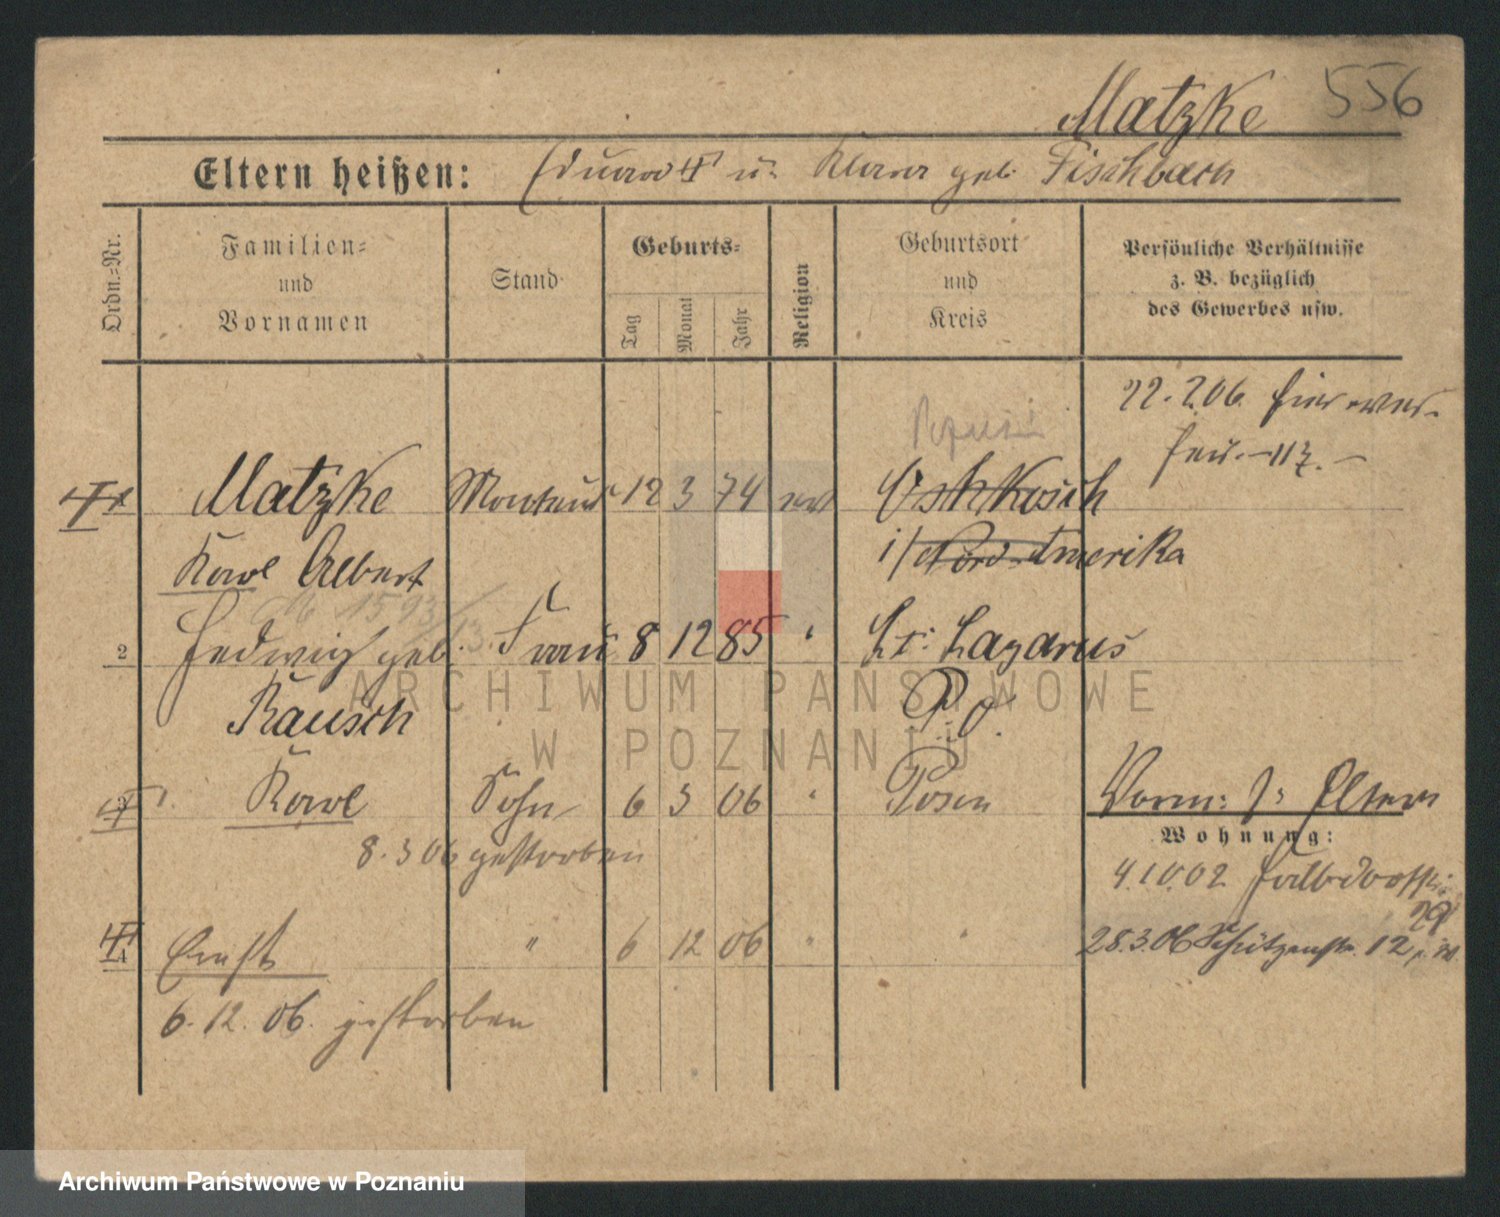 Matzke 556
Eltern heißen: Eduard u. Klara geb. Fischbach
Ordn.=Nr.
Familien=
und
Vornamen
Stand
Geburts=
Tag
Monat
Jahr
Religion
Geburtsort
und
Kreis
Persönliche Verhältnisse
z. B. bezüglich
des Gewerbes usw.
22. 2. 06. hier
Matzke Monteur 12 3 74 Oshkosch
Karl Albert i/ Nord-Amerika
2 Hedwig geb. Frau 8 12 85 " St. Lazarus
Rausch P. O.
3 Karl Sohn 6 3 06 " Posen
8. 3 06 gestorben
Eltern
Wohnung:
4.10.02
29
4 Ernst " 6 12 06 " " 28.3.06 Schützenstr. 12
6. 12. 06. gestorben
ARCHIWUM PAŃSTWOWE
W POZNANIU
Archiwum Państwowe w Poznaniu